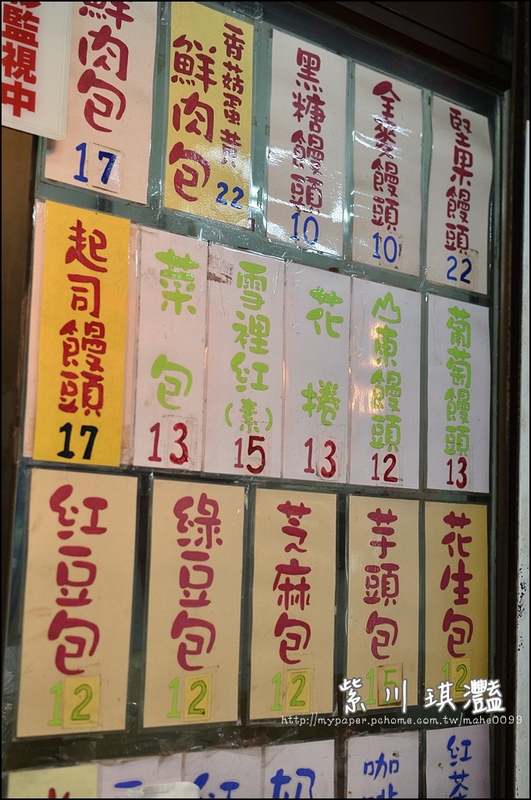 監視中
鮮肉包
17
香菇蛋黃
鮮肉包
22
黑糖饅頭
10
全麥饅頭
10
堅果饅頭
22
起司饅頭
17
菜包
13
雪裡紅(素)
15
花捲
13
山東饅頭
12
葡萄饅頭
13
紅豆包
12
綠豆包
12
芝麻包
12
芋頭包
15
花生包
12
紅
奶
咖啡
紅茶
紫川琪灩
http://mypaper.pchome.com.tw/mahe0099